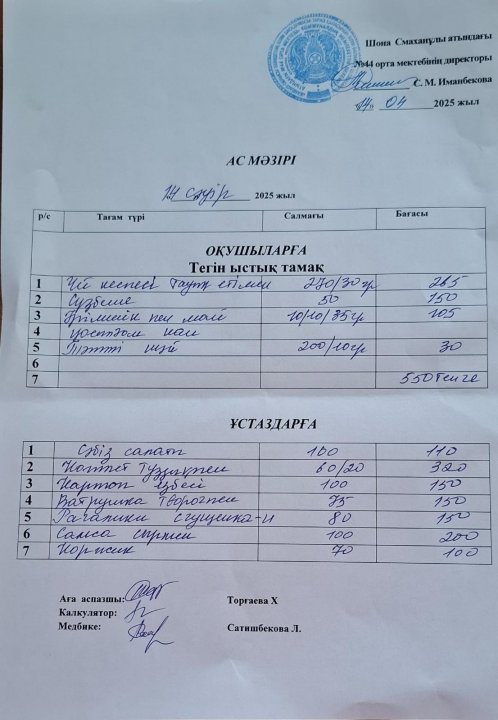 Шона Смаханұлы атындағы
№44 орта мектебінің директоры
С. М. Иманбекова
14 04 2025 жыл
АС МӘЗІРІ
14 сәуір 2025 жыл
р/с Тағам түрі Салмағы Бағасы
ОҚУШЫЛАРҒА
Тегін ыстық тамақ
1 Үй кеспесі тауық етімен 270/30гр 265
2 Сүзбеше 50 150
3 Ірімшік пен май 10/10/35гр 105
4 қосылған нан
5 Тәтті шәй 200/10гр 30
6
7 550 теңге
ҰСТАЗДАРҒА
1 Сәбіз салат 100 110
2 Котлет тұздықпен 60/20 320
3 Картоп езбесі 100 150
4 Ватрушка творогпен 75 150
5 Рагалики сгущенка-и 80 150
6 Самса сырмен 100 200
7 Коржик 70 100
Аға аспазшы: Торғаева Х
Калкулятор:
Медбике: Сатишбекова Л.